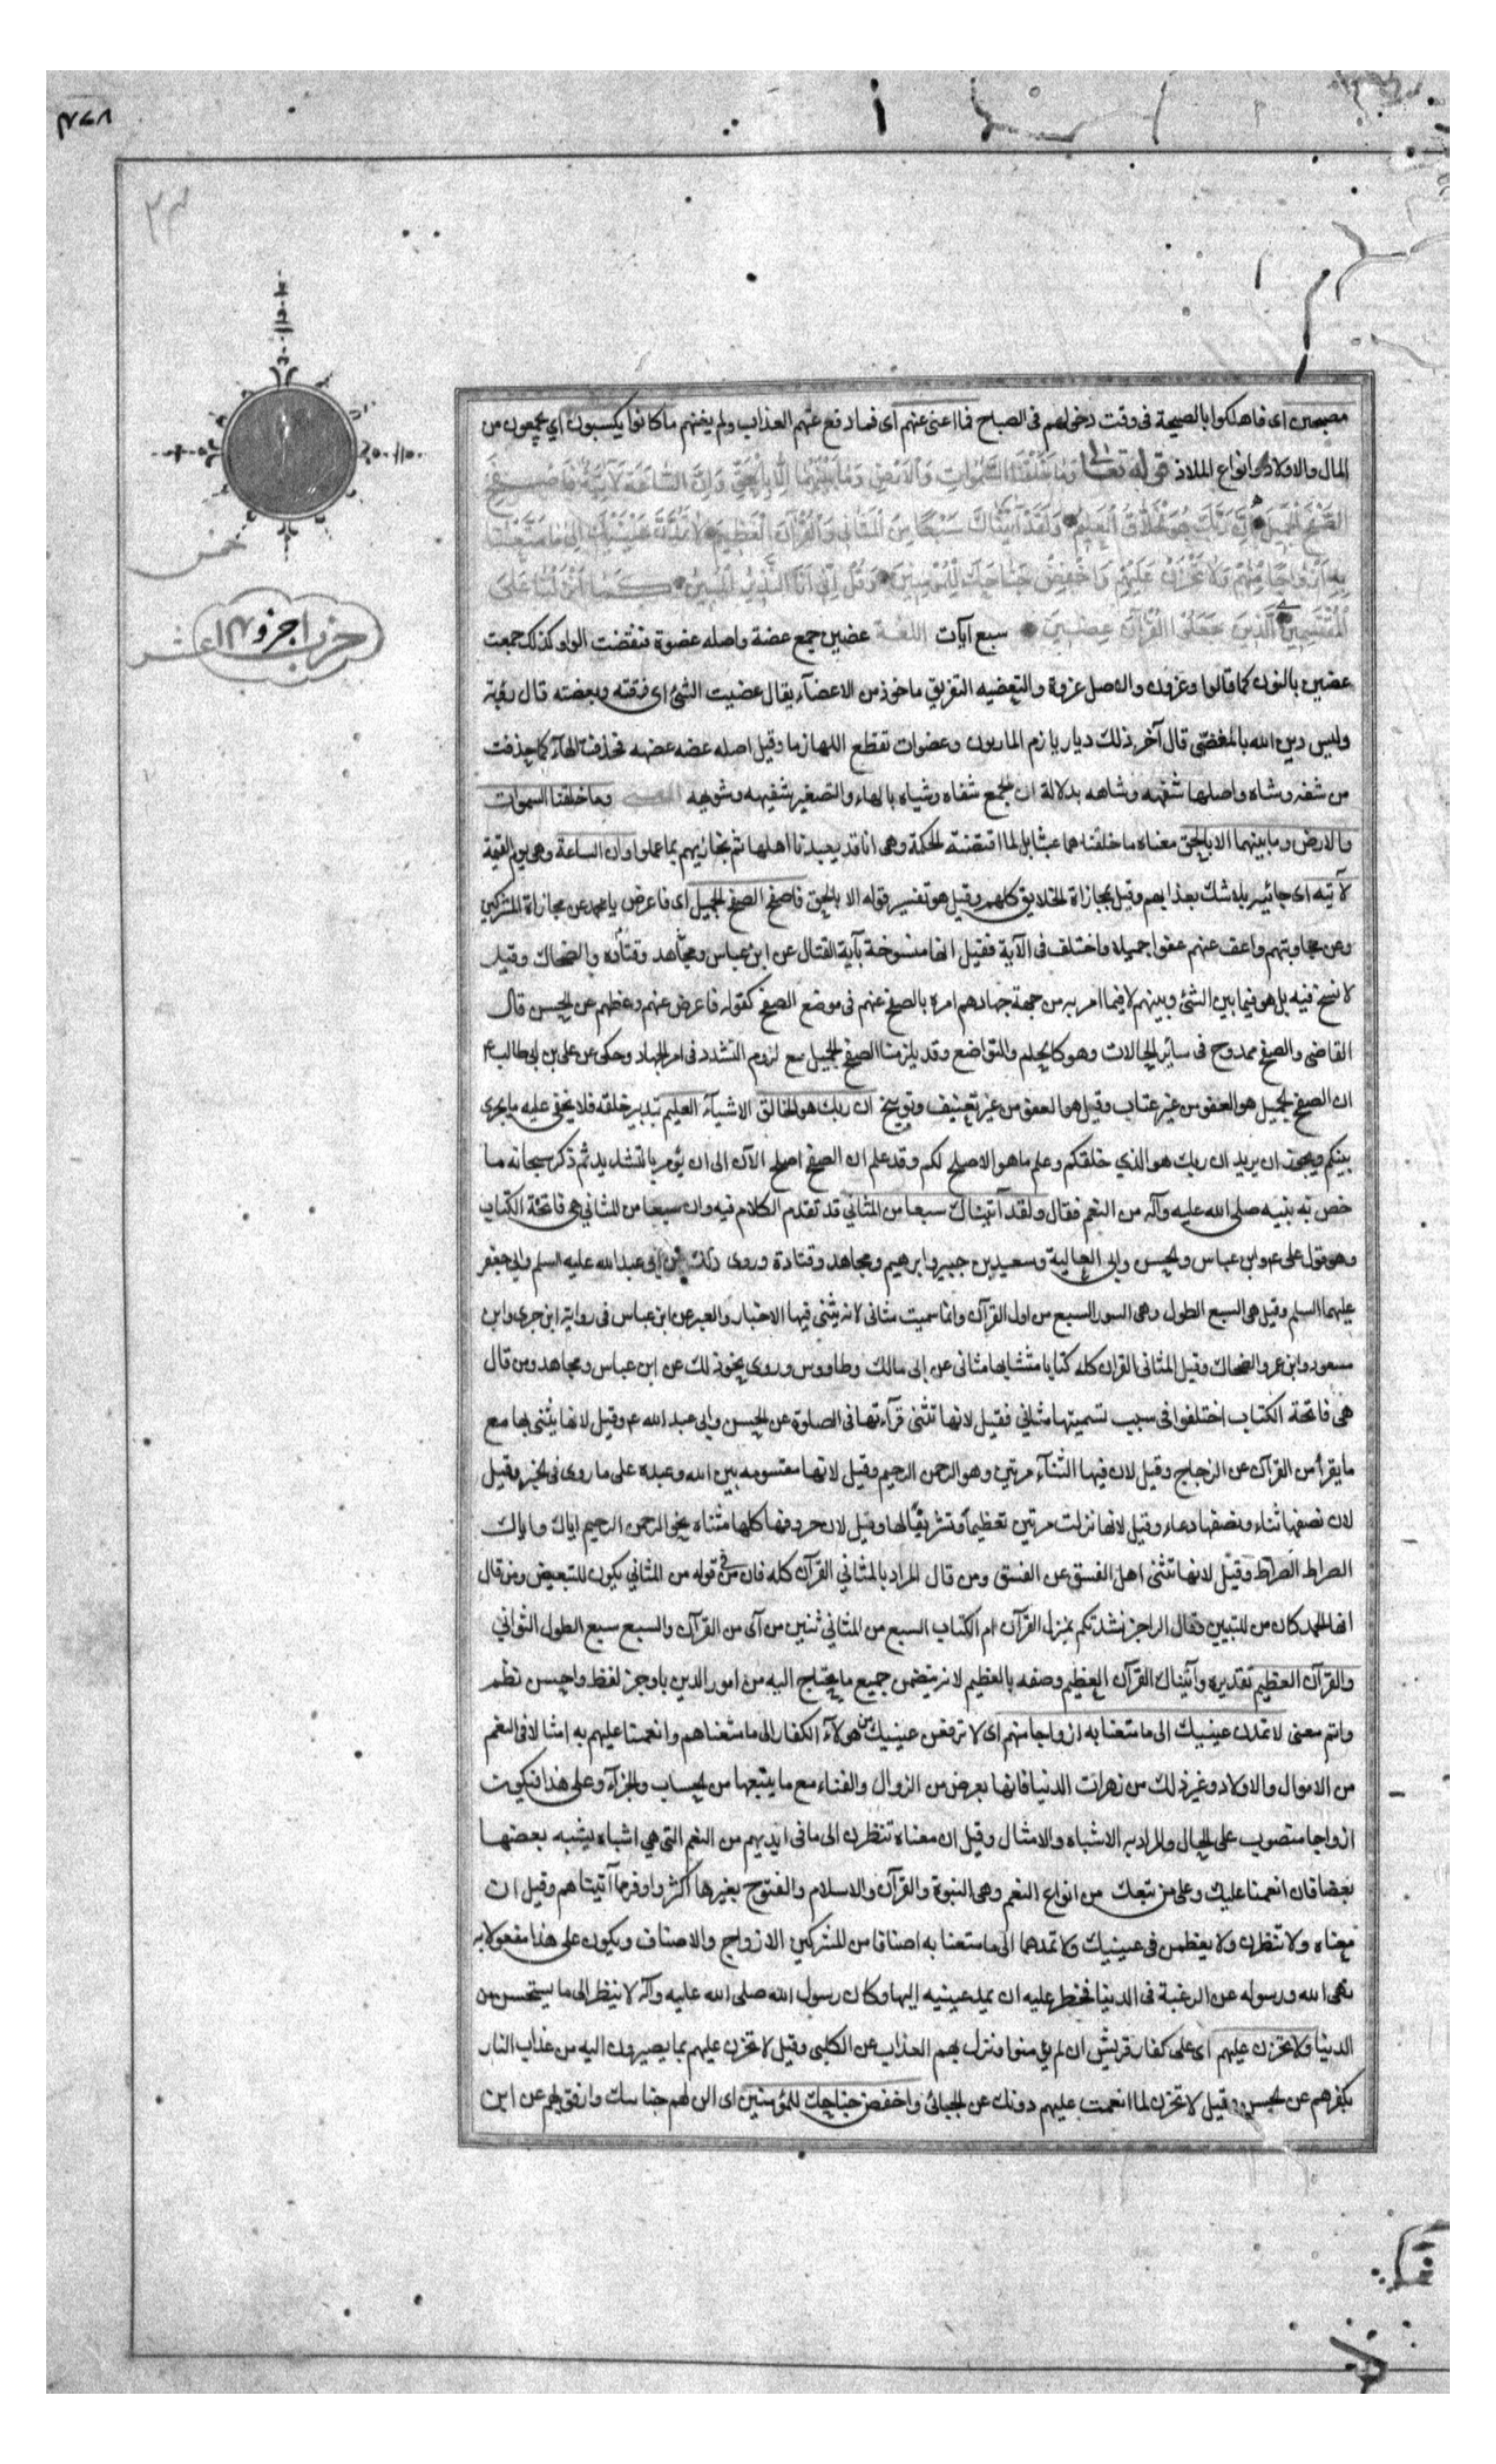 مصبحين اى فاهلكوا بالصيحة فى وقت دخولهم فى الصباح فما اغنى عنهم اى فما دفع عنهم العذاب ولم يغنهم ما كانوا يكسبون اي يجمعون من
المال والاولاد وانواع الملاذ قوله تعالى وَمَا خَلَقْنَا السَّمٰوَاتِ وَالْاَرْضَ وَمَا بَيْنَهُمَا اِلَّا بِالْحَقِّ وَاِنَّ السَّاعَةَ لَاٰتِيَةٌ فَاصْفَحِ
الصَّفْحَ الْجَمِيلَ اِنَّ رَبَّكَ هُوَ الْخَلَّاقُ الْعَلِيمُ وَلَقَدْ آتَيْنَاكَ سَبْعًا مِنَ الْمَثَانِي وَالْقُرْآنَ الْعَظِيمَ لَا تَمُدَّنَّ عَيْنَيْكَ اِلٰى مَا مَتَّعْنَا
بِهِ اَزْوَاجًا مِنْهُمْ وَلَا تَحْزَنْ عَلَيْهِمْ وَاخْفِضْ جَنَاحَكَ لِلْمُؤْمِنِينَ وَقُلْ اِنّى اَنَا النَّذِيرُ الْمُبِينُ كَمَا اَنْزَلْنَا عَلَى
الْمُقْتَسِمِينَ الَّذِينَ جَعَلُوا الْقُرْآنَ عِضِينَ سبع آيات اللغة عضين جمع عضة واصله عضوة فنقضت الواو وكذلك جمعت
عضين بالنون كما قالوا وعزون والاصل عزوة والتعضيه التفريق ماخوذ من الاعضآء يقال عضيت الشئ اى فرقته وبعضته قال رؤبة
وليس دين الله بالمعضّى قال آخر ذلك ديار يازم المازمون وعضوات تقطع اللهازما وقيل اصله عضه عضهه فحذفت الهآء كما حذفت
من شفه وشاه واصلها شفهه وشاهه بدلالة ان الجمع شفاه وشياه بالهاء والتصغير شفيهه وشويهه المعنى وما خلقنا السموات
والارض وما بينهما الا بالحق معناه ما خلقنا هما عبثا بل لما اقتضته الحكمة وهى انا قد يعبدنا اهلها ثم نجازيهم بما عملوا وان الساعة وهى يوم القيمة
لآتيه اى جائيه بلا شك بعذابهم وقيل بمجازاة الخلايق كلهم وقيل هو تفسير قوله الا بالحق فاصفح الصفح الجميل اى فاعرض يا محمد عن مجازاة المشركين
وعن مجاوبتهم واعف عنهم عفوا جميلا واختلف فى الآية فقيل انها منسوخة بآية القتال عن ابن عباس ومجاهد وقتاده والضحاك وقيل
لا نسخ فيه بل هو فيما بين الشئ وبينهم لا فيما امر به من جهة جهادهم امره بالصفح عنهم فى موضع الصفح كقوله فاعرض عنهم وعظهم عن الحسن قال
القاضى والصفح ممدوح فى سائر الحالات وهو كالحلم والتواضع وقد يلزمنا الصفح الجميل مع لزوم التشدد فى امر الجهاد وحكى عن على بن ابى طالب ع
ان الصفح الجميل هو العفو من غير عتاب وقيل هو العفو من غير تعنيف وتوبيخ ان ربك هو الخالق الاشيآء العليم بتدبير خلقه فلا يخفى عليه ما يجرى
بينكم ويجوز ان يريد ان ربك هو الذي خلقكم وعلم ما هو الاصلح لكم وقد علم ان الصفح اصلح الآن الى ان يؤمر بالتشديد ثم ذكر سبحانه ما
خص به نبيه صلى الله عليه وآله من النعم فقال ولقد آتيناك سبعا من المثاني قد تقدم الكلام فيه وان سبعا من المثاني هى فاتحة الكتاب
وهو قول على ع وابن عباس والحسن وابى العالية وسعيد بن جبير وابرهيم ومجاهد وقتادة وروى ذلك عن ابى عبد الله عليه السلم وابى جعفر
عليهما السلم وقيل هى السبع الطول وهى السور السبع من اول القرآن وانما سميت مثانى لانه يثنى فيها الاخبار والعبر عن ابن عباس فى رواية ابن جرى وابن
مسعود وابن عمر والضحاك وقيل المثانى القران كله كتابا متشابها مثانى عن ابى مالك وطاووس وروى نحو ذلك عن ابن عباس ومجاهد ومن قال
هى فاتحة الكتاب اختلفوا فى سبب تسميتها مثاني فقيل لانها تثنى قرآءتها فى الصلوة عن الحسن وابى عبد الله ع وقيل لانها يثنى بها مع
ما يقرأ من القرآن عن الزجاج وقيل لان فيها الثنآء مرتين وهو الرحمن الرحيم وقيل لانها مقسومه بين الله وعبده على ما روى فى الخبر وقيل
لان نصفها ثناء ونصفها دعاء وقيل لانها نزلت مرتين تعظيماً وتشريفا لها وقيل لان حروفها كلها مثناه نحو الرحمن الرحيم اياك واياك
الصراط الصراط وقيل لانها تثنى اهل الفسق عن الفسق ومن قال المراد بالمثاني القرآن كله فان من فى قوله من المثاني يكون للتبعيض ومن قال
انها الحمد كان من للتبيين وقال الراجز نشدتكم بمنزل القرآن ام الكتاب السبع من المثاني ثنين من آى من القرآن والسبع سبع الطول الثواني
والقرآن العظيم تقديره وآتيناك القرآن العظيم وصفه بالعظيم لانه يتضمن جميع ما يحتاج اليه من امور الدين باوجز لفظ واحسن نظم
واتم معنى لا تمدن عينيك الى ما متعنا به ازواجا منهم اى لا ترفعن عينيك من هولآء الكفار الى ما متعناهم وانعمنا عليهم به امثالا فى النعم
من الاموال والاولاد وغير ذلك من زهرات الدنيا فانها بعرض من الزوال والفناء مع ما يتبعها من الحساب والجزآء وعلى هذا فيكون
ازواجا منصوب على الحال والمراد به الاشباه والامثال وقيل ان معناه تنظرن الى ما فى ايديهم من النعم التى هي اشباه يشبه بعضها
بعضا فان انعمنا عليك وعلى من تبعك من انواع النعم وهى النبوة والقرآن والاسلام والفتوح بغيرها اكثر واوفر مما آتيناهم وقيل ان
معناه ولا تنظرن ولا يعظمن فى عينيك ولا تمدهما الى ما متعنا به اصنافا من المشركين الازواج والاصناف ويكون على هذا مفعولا به
نهى الله ورسوله عن الرغبة فى الدنيا فحظر عليه ان يمد عينيه اليها وكان رسول الله صلى الله عليه وآله لا ينظر الى ما يستحسن من
الدنيا ولا تحزن عليهم اى على كفار قريش ان لم يؤمنوا ونزل بهم العذاب عن الكلبى وقيل لا تحزن عليهم بما يصيرون اليه من عذاب النار
بكفرهم عن الحسن وقيل لا تحزن لما انعمت عليهم دونك عن الجبائى واخفض جناحك للمؤمنين اى الن لهم جناسك وارفق بهم عن ابن
خمس
حزب ا جزو ١٤
عشر